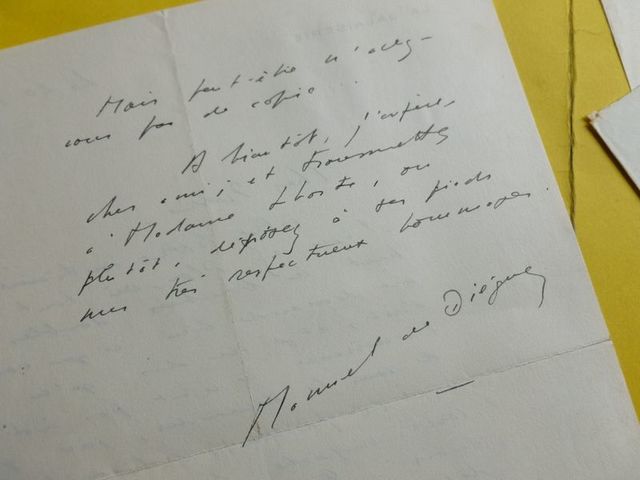 Mais peut-être n'avez-
vous pas de copie.
A bientôt, j'espère,
cher ami, et transmettez
à Madame Lhoste, ou
plutôt, déposez à ses pieds
mes très respectueux hommages.
Manuel de Diéguez